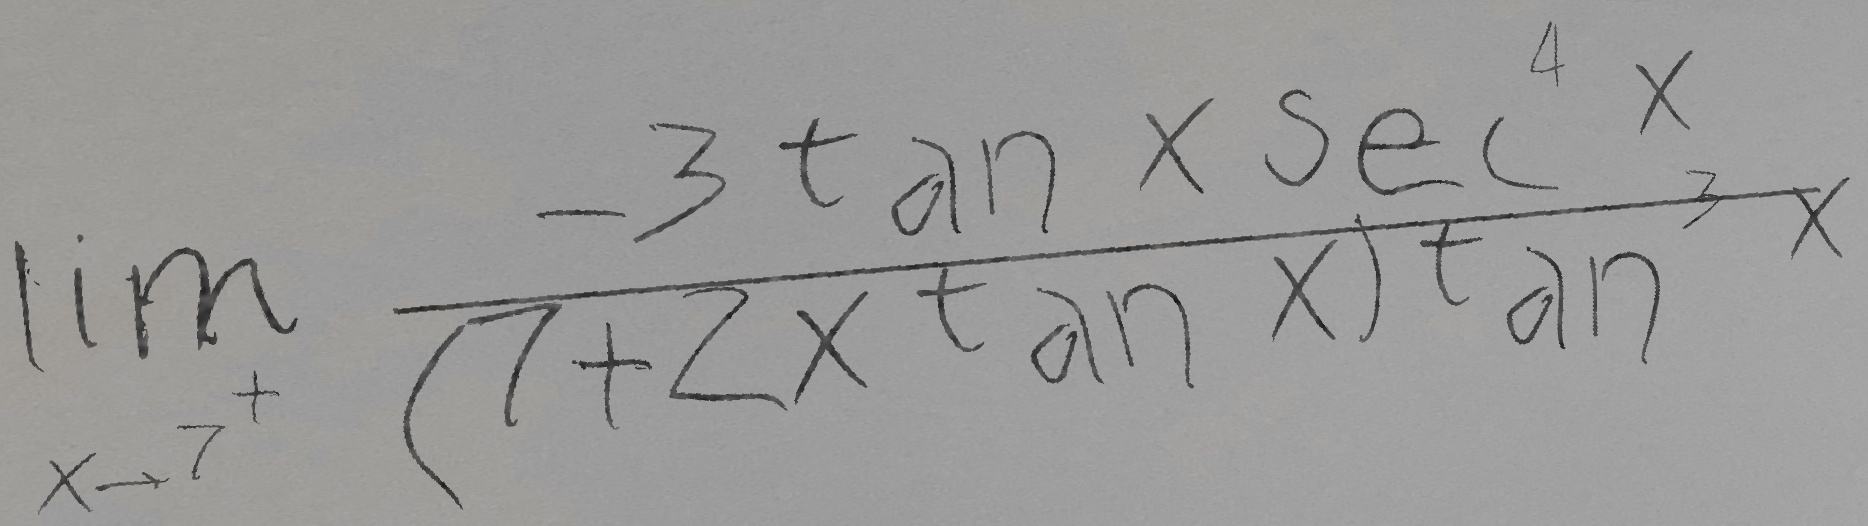 \lim_{x \to 7^+} \frac{-3 \tan x \sec^4 x}{(7 + 2x \tan x) \tan^3 x}